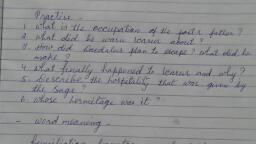 Practise -
1. What is the occupation of the poet's father?
2. What did he warn Icarus about?
3. How did Daedalus plan to escape? What did he
make?
4. What finally happened to Icarus and why?
5. Describe the hospitality that was given by
the Sage?
6. Whose hermitage was it?
- word meaning -